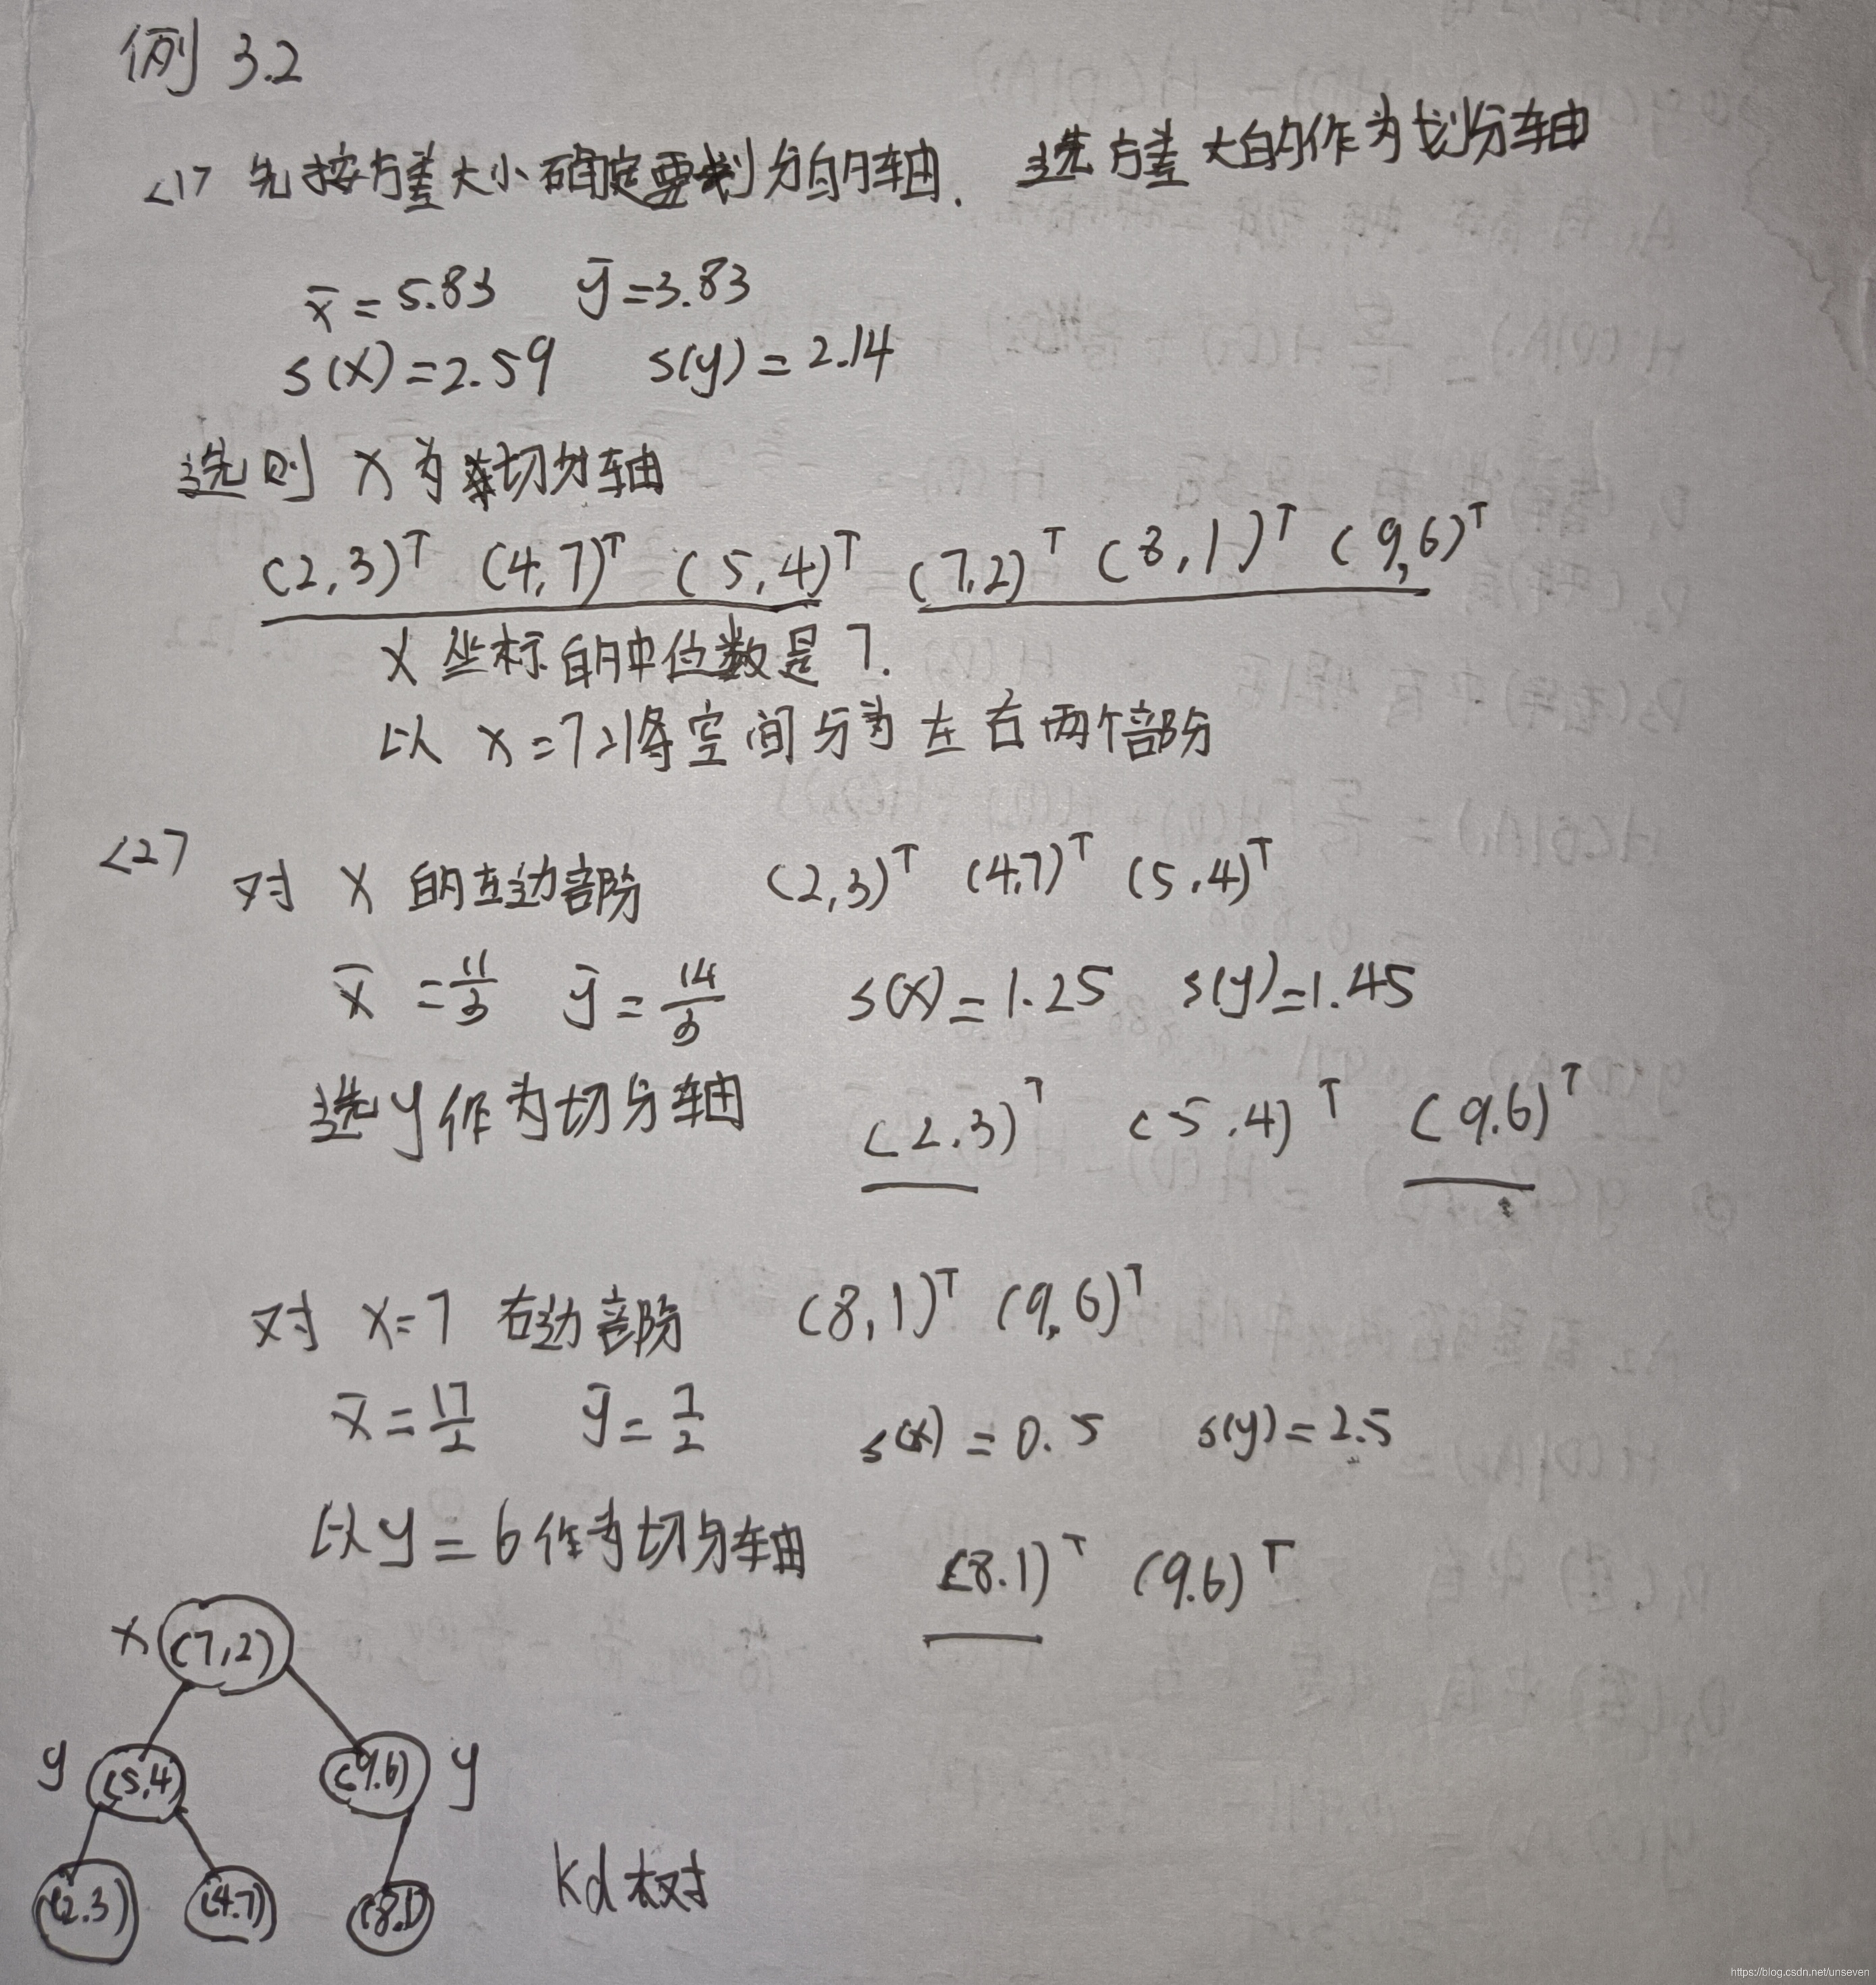 例 3.2
<1> 先按方差大小确定要划分的轴. 选方差大的作为划分轴
x̄ = 5.83 ȳ = 3.83
s(x) = 2.59 s(y) = 2.14
选则 x 为切分轴
(2,3)ᵀ (4,7)ᵀ (5,4)ᵀ (7,2)ᵀ (8,1)ᵀ (9,6)ᵀ
x 坐标的中位数是 7.
以 x=7 将空间分为左右两个部分
<2>
对 x 的左边部份 (2,3)ᵀ (4,7)ᵀ (5,4)ᵀ
x̄ = 11/3 ȳ = 14/3 s(x) = 1.25 s(y) = 1.45
选 y 作为切分轴 (2.3)ᵀ (5.4)ᵀ (9.6)ᵀ
对 x=7 右边部份 (8,1)ᵀ (9,6)ᵀ
x̄ = 17/2 ȳ = 7/2 s(x) = 0.5 s(y) = 2.5
以 y = 6 作为切分轴 (8.1)ᵀ (9.6)ᵀ
x (7,2)
y (5.4) (9.6) y
(2.3) (4.7) (8.1) kd 树
https://blog.csdn.net/unseven